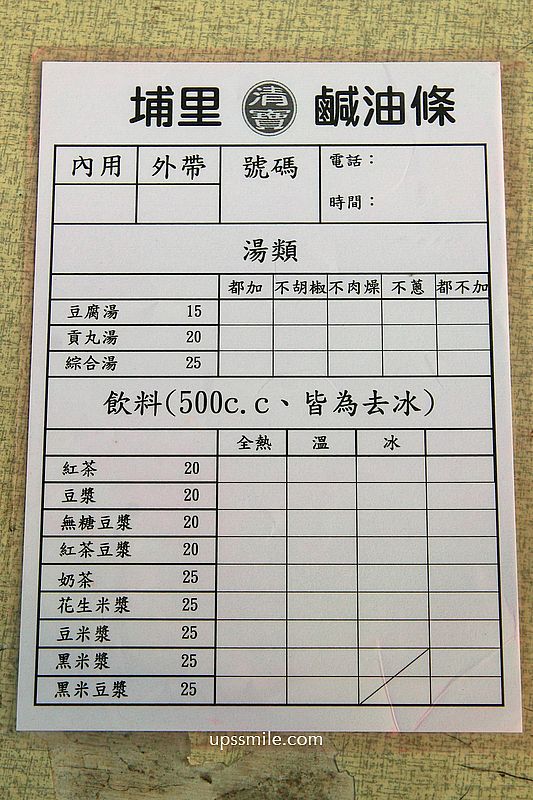 埔里 清寶 鹹油條
內用 外帶 號碼 電話：
時間：
湯類
都加 不胡椒 不肉燥 不蔥 都不加
豆腐湯 15
貢丸湯 20
綜合湯 25
飲料(500c.c、皆為去冰)
全熱 溫 冰
紅茶 20
豆漿 20
無糖豆漿 20
紅茶豆漿 20
奶茶 25
花生米漿 25
豆米漿 25
黑米漿 25
黑米豆漿 25
upssmile.com